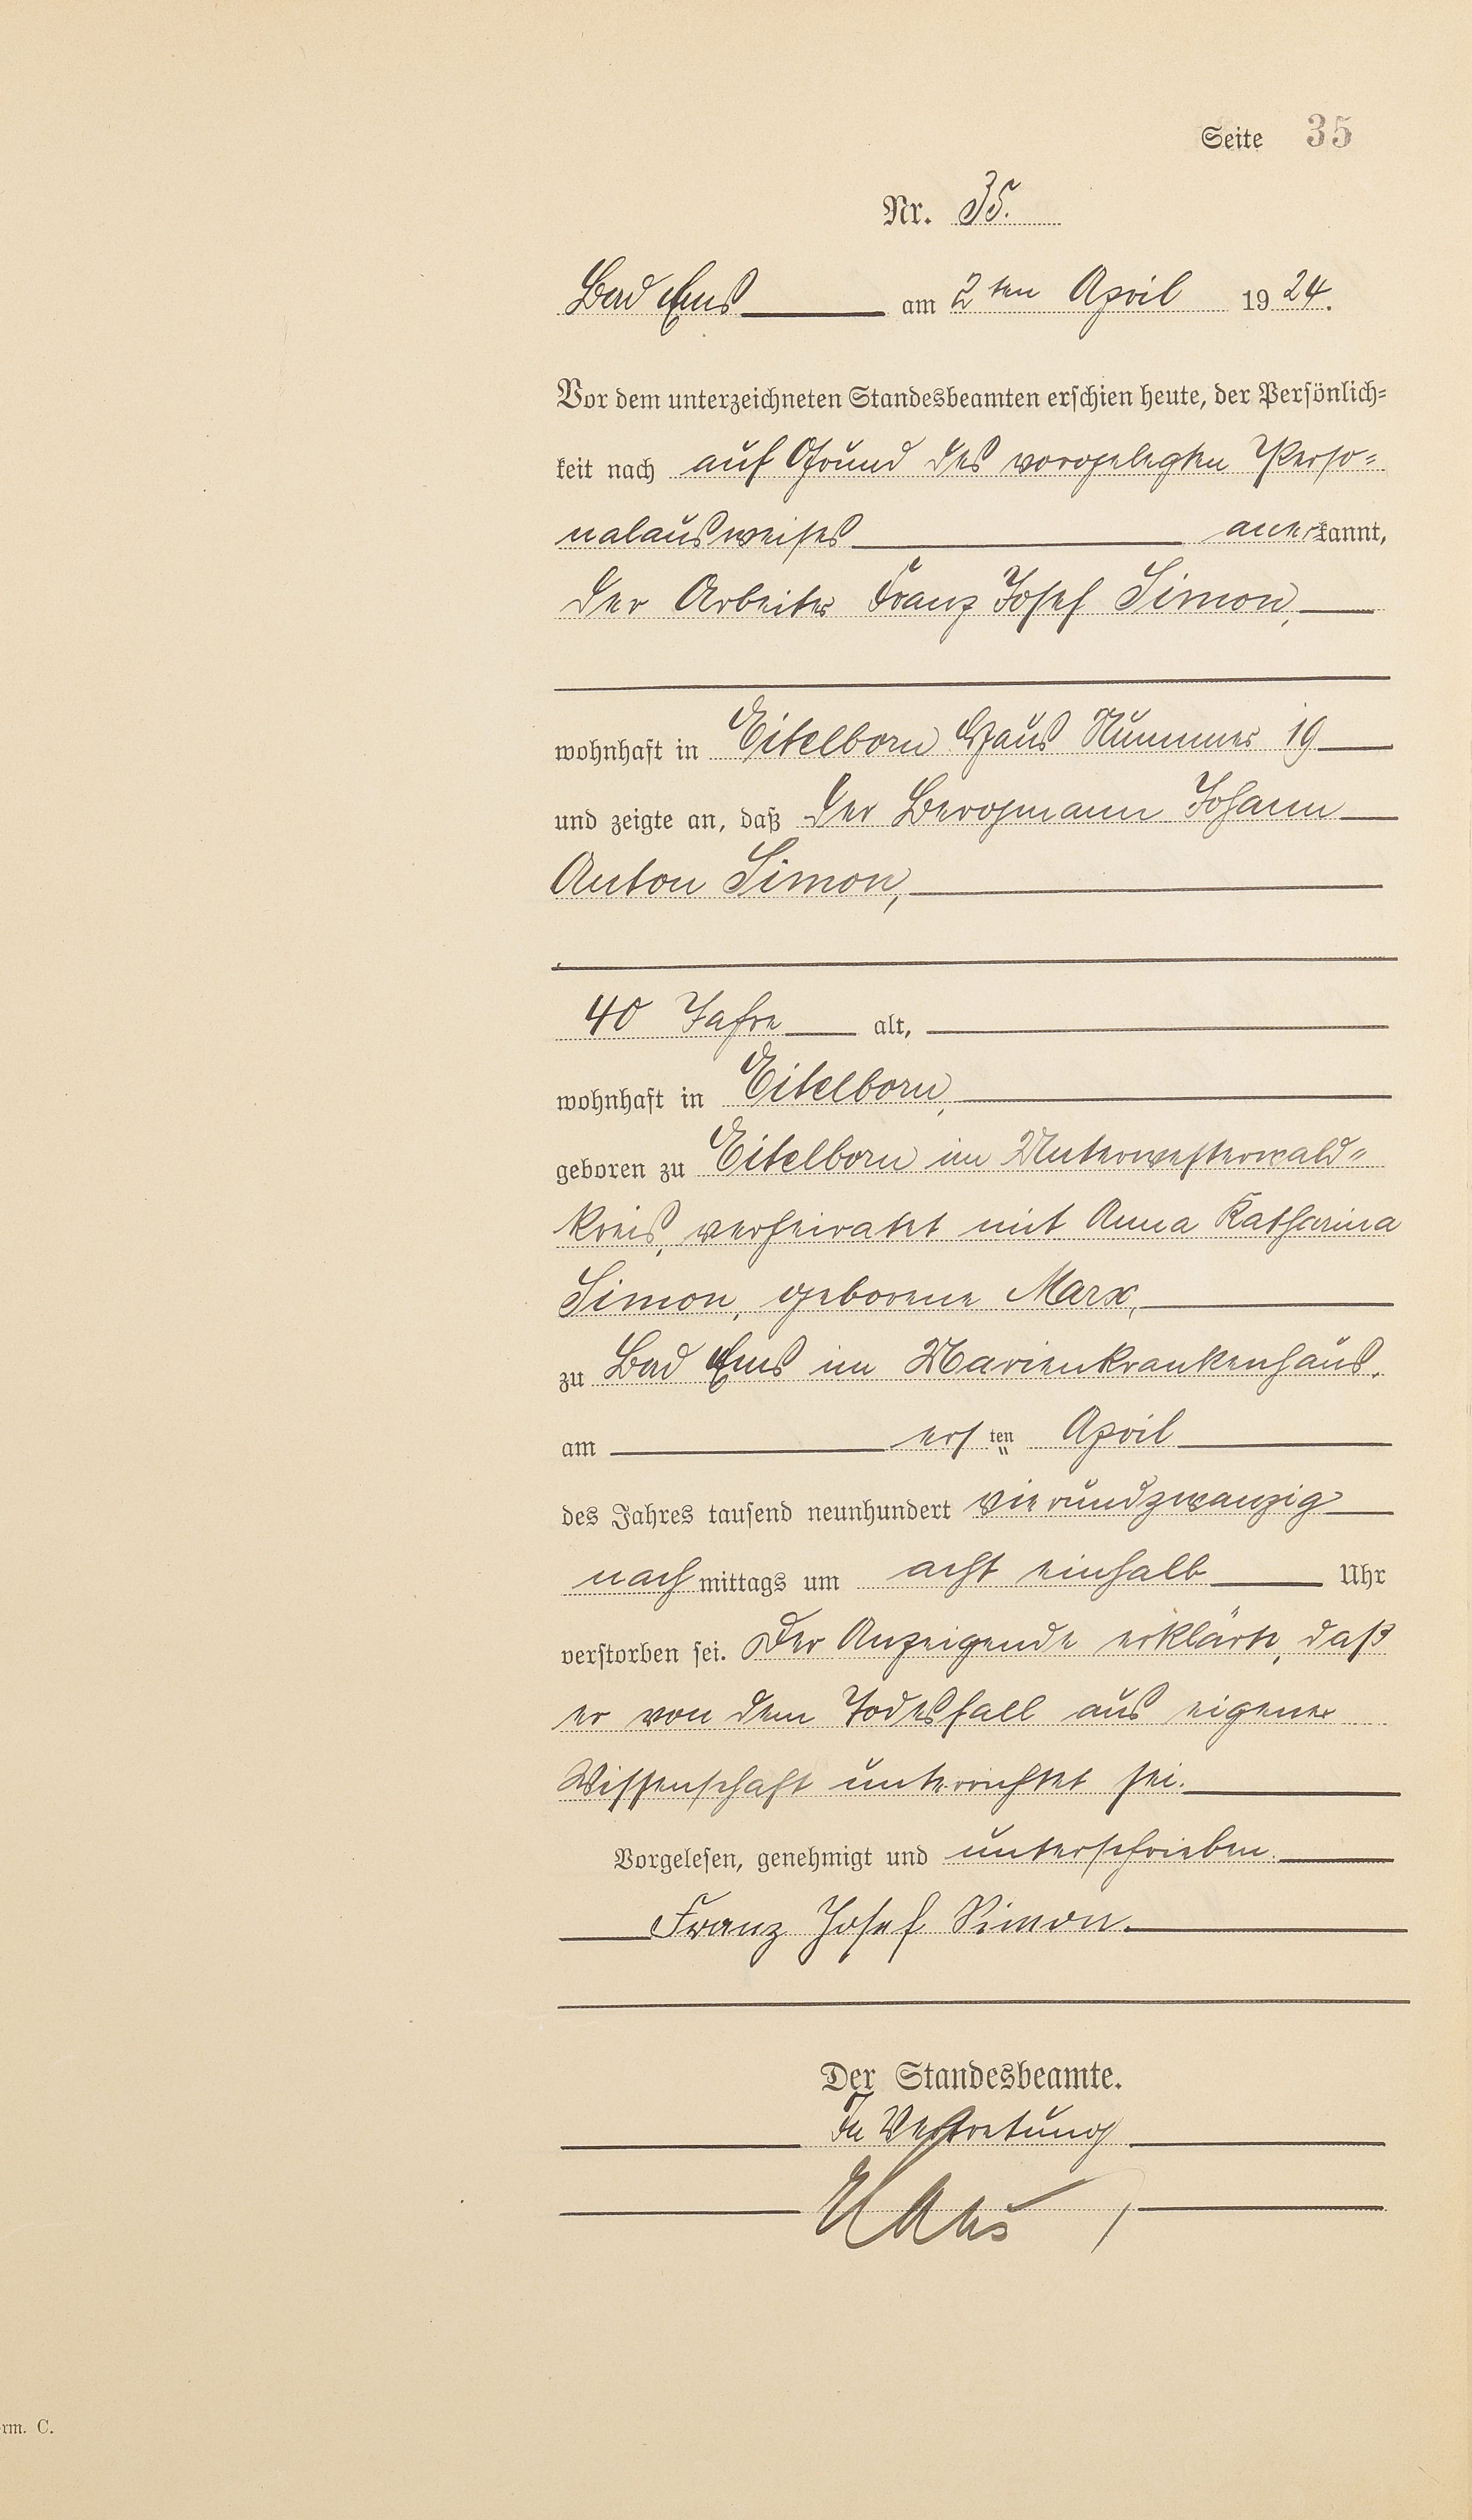 Seite 35
Nr. 35.
Bad Ems am 2ten April 1924.
Vor dem unterzeichneten Standesbeamten erschien heute, der Persönlich-
keit nach auf Grund des vorgelegten Perso-
nalausweises anerkannt,
der Arbeiter Franz Josef Simon,
wohnhaft in Eitelborn Haus Nummer 19
und zeigte an, daß der Bergmann Johann
Anton Simon,
40 Jahre alt,
wohnhaft in Eitelborn,
geboren zu Eitelborn im Unterwesterwald-
kreis, verheiratet mit Anna Katharina
Simon, geborene Marx,
zu Bad Ems im Marienkrankenhaus,
am ersten April
des Jahres tausend neunhundert vierundzwanzig
nachmittags um acht einhalb Uhr
verstorben sei. Der Anzeigende erklärte, daß
er von dem Todesfall aus eigener
Wissenschaft unterrichtet sei.
Vorgelesen, genehmigt und unterschrieben.
Franz Josef Simon.
Der Standesbeamte.
In Vertretung
rm. C.